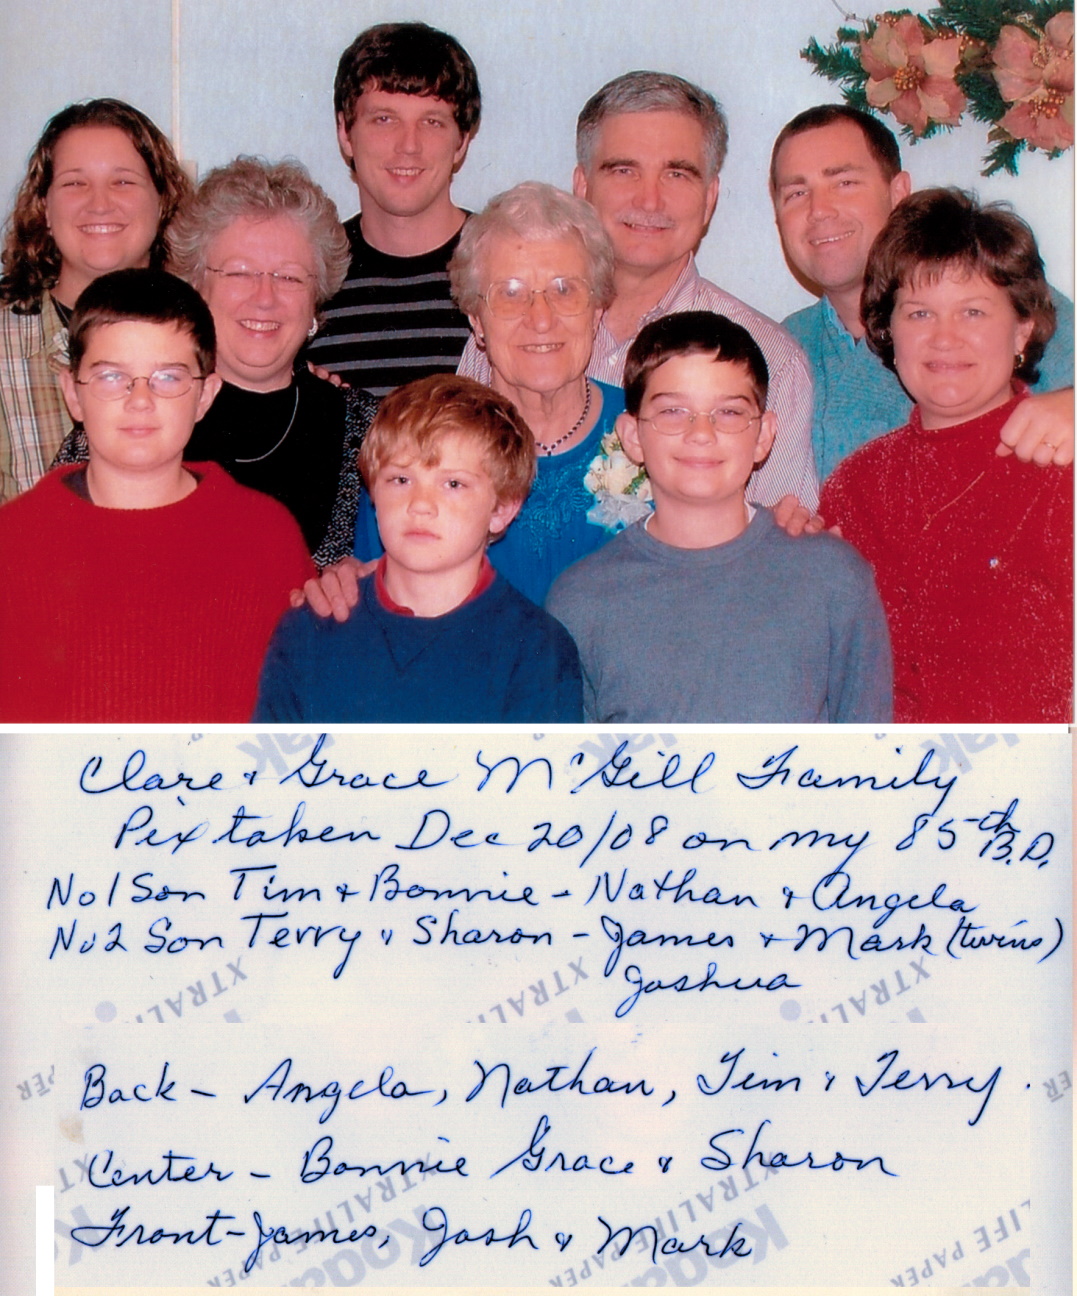 Clare & Grace McGill Family
Pix taken Dec 20/08 on my 85th B.D.
No1 Son Tim & Bonnie - Nathan & Angela
No2 Son Terry & Sharon - James & Mark (twins)
Joshua
XTRALI XTRALI XTRALI
Back - Angela, Nathan, Tim & Terry.
Center - Bonnie Grace & Sharon
Front - James, Josh & Mark
XTRALIFE PAPER
Kodak